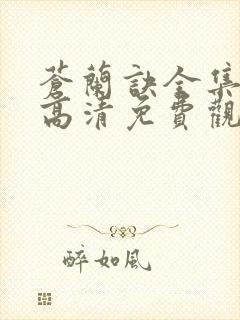 蒼蘭訣全集
高清免費觀
醉如風